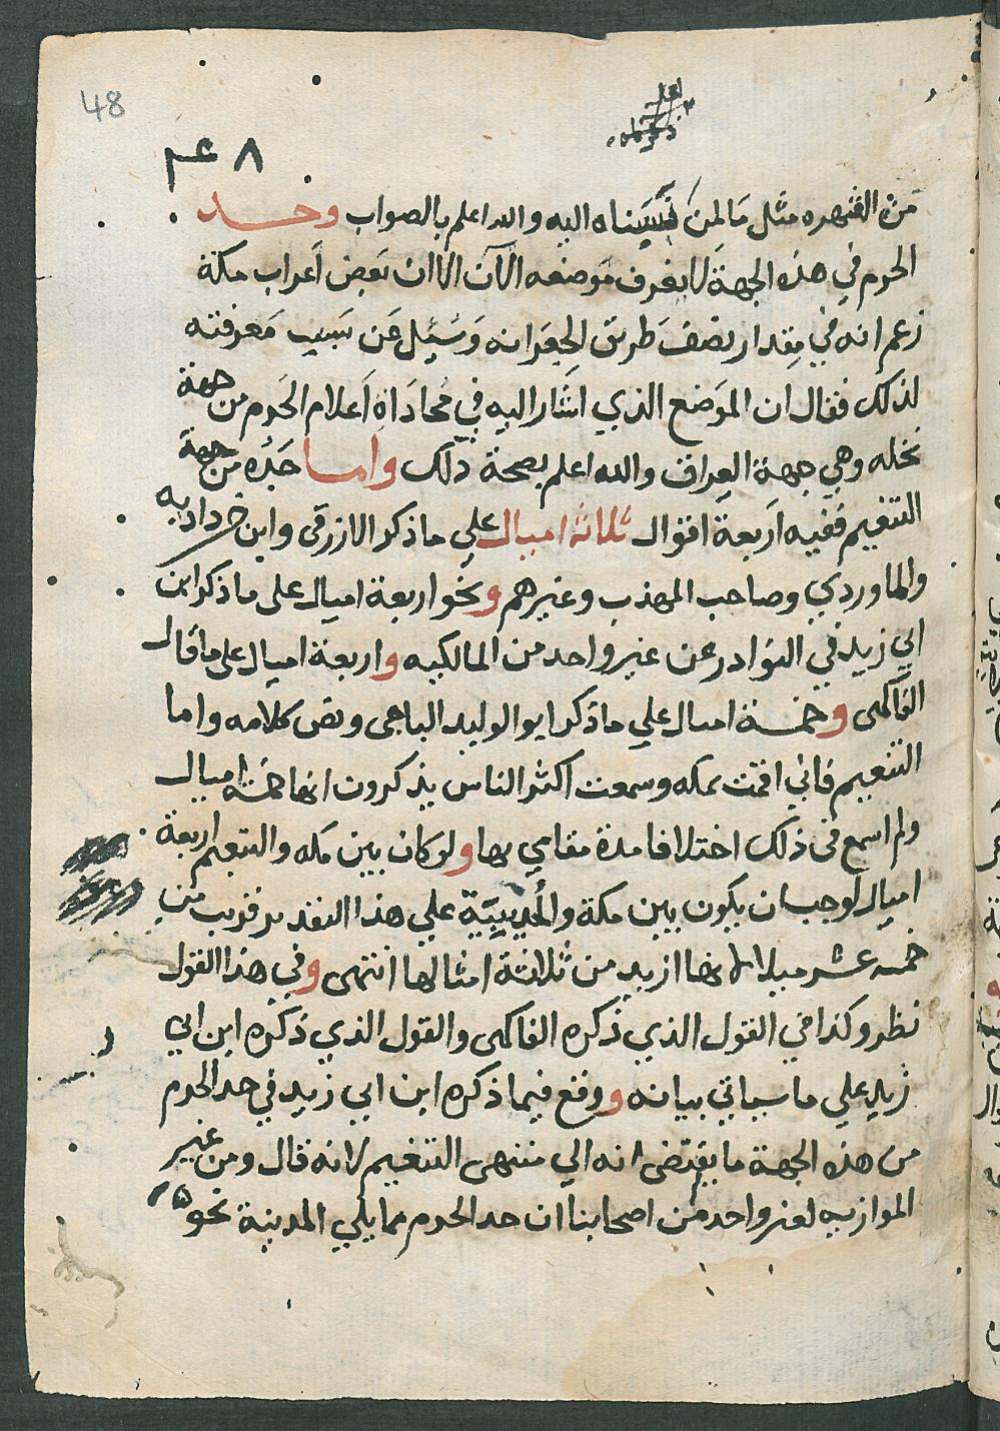 48
٨ عم
من الشهره مثل ما لمن نسبناه اليه والله اعلم بالصواب وحد
الحرم في هذه الجهة لا يعرف موضعه الآن الا ان بعض أعراب مكة
زعم انه في مقدار نصف طريق الجعرانه وسئل عن سبب معرفته
لذلك فقال ان الموضع الذي اشار اليه في محاداة أعلام الحرم من جهة
نخله وهي جهة العراق والله اعلم بصحة ذلك واما حده من جهة
التنعيم ففيه اربعة اقوال ثلاثة اميال علي ما ذكر الازرقى وابن خرداذبه
والماوردي وصاحب المهذب وغيرهم ونحو اربعة اميال على ما ذكر ابن
ابي زيد في النوادر عن غير واحد من المالكيه واربعة اميال على ما قال
الفاكهى وخمسة اميال علي ما ذكر ابو الوليد الباجى ونص كلامه واما
التنعيم فاني اقمت بمكه وسمعت اكثر الناس يذكرون انها خمسة اميال
ولم اسمع فى ذلك اختلافا مدة مقامي بها ولو كان بين مكه والتنعيم اربعة
اميال لوجب ان يكون بين مكة والحديبيّة علي هذا التقدير قريب من
خمسه عشر ميلا لانها ازيد من ثلاثة امثالها انتهى وفي هذا القول
نظر وكذا في القول الذي ذكره الفاكهى والقول الذي ذكره ابن ابي
زيد علي ما سياتي بيانه ووقع فيما ذكره ابن ابي زيد في حد الحرم
من هذه الجهة ما يقتضى انه الي منتهى التنعيم لانه قال ومن غير
الموازيه لغير واحد من اصحابنا ان حد الحرم مما يلي المدينة نحو